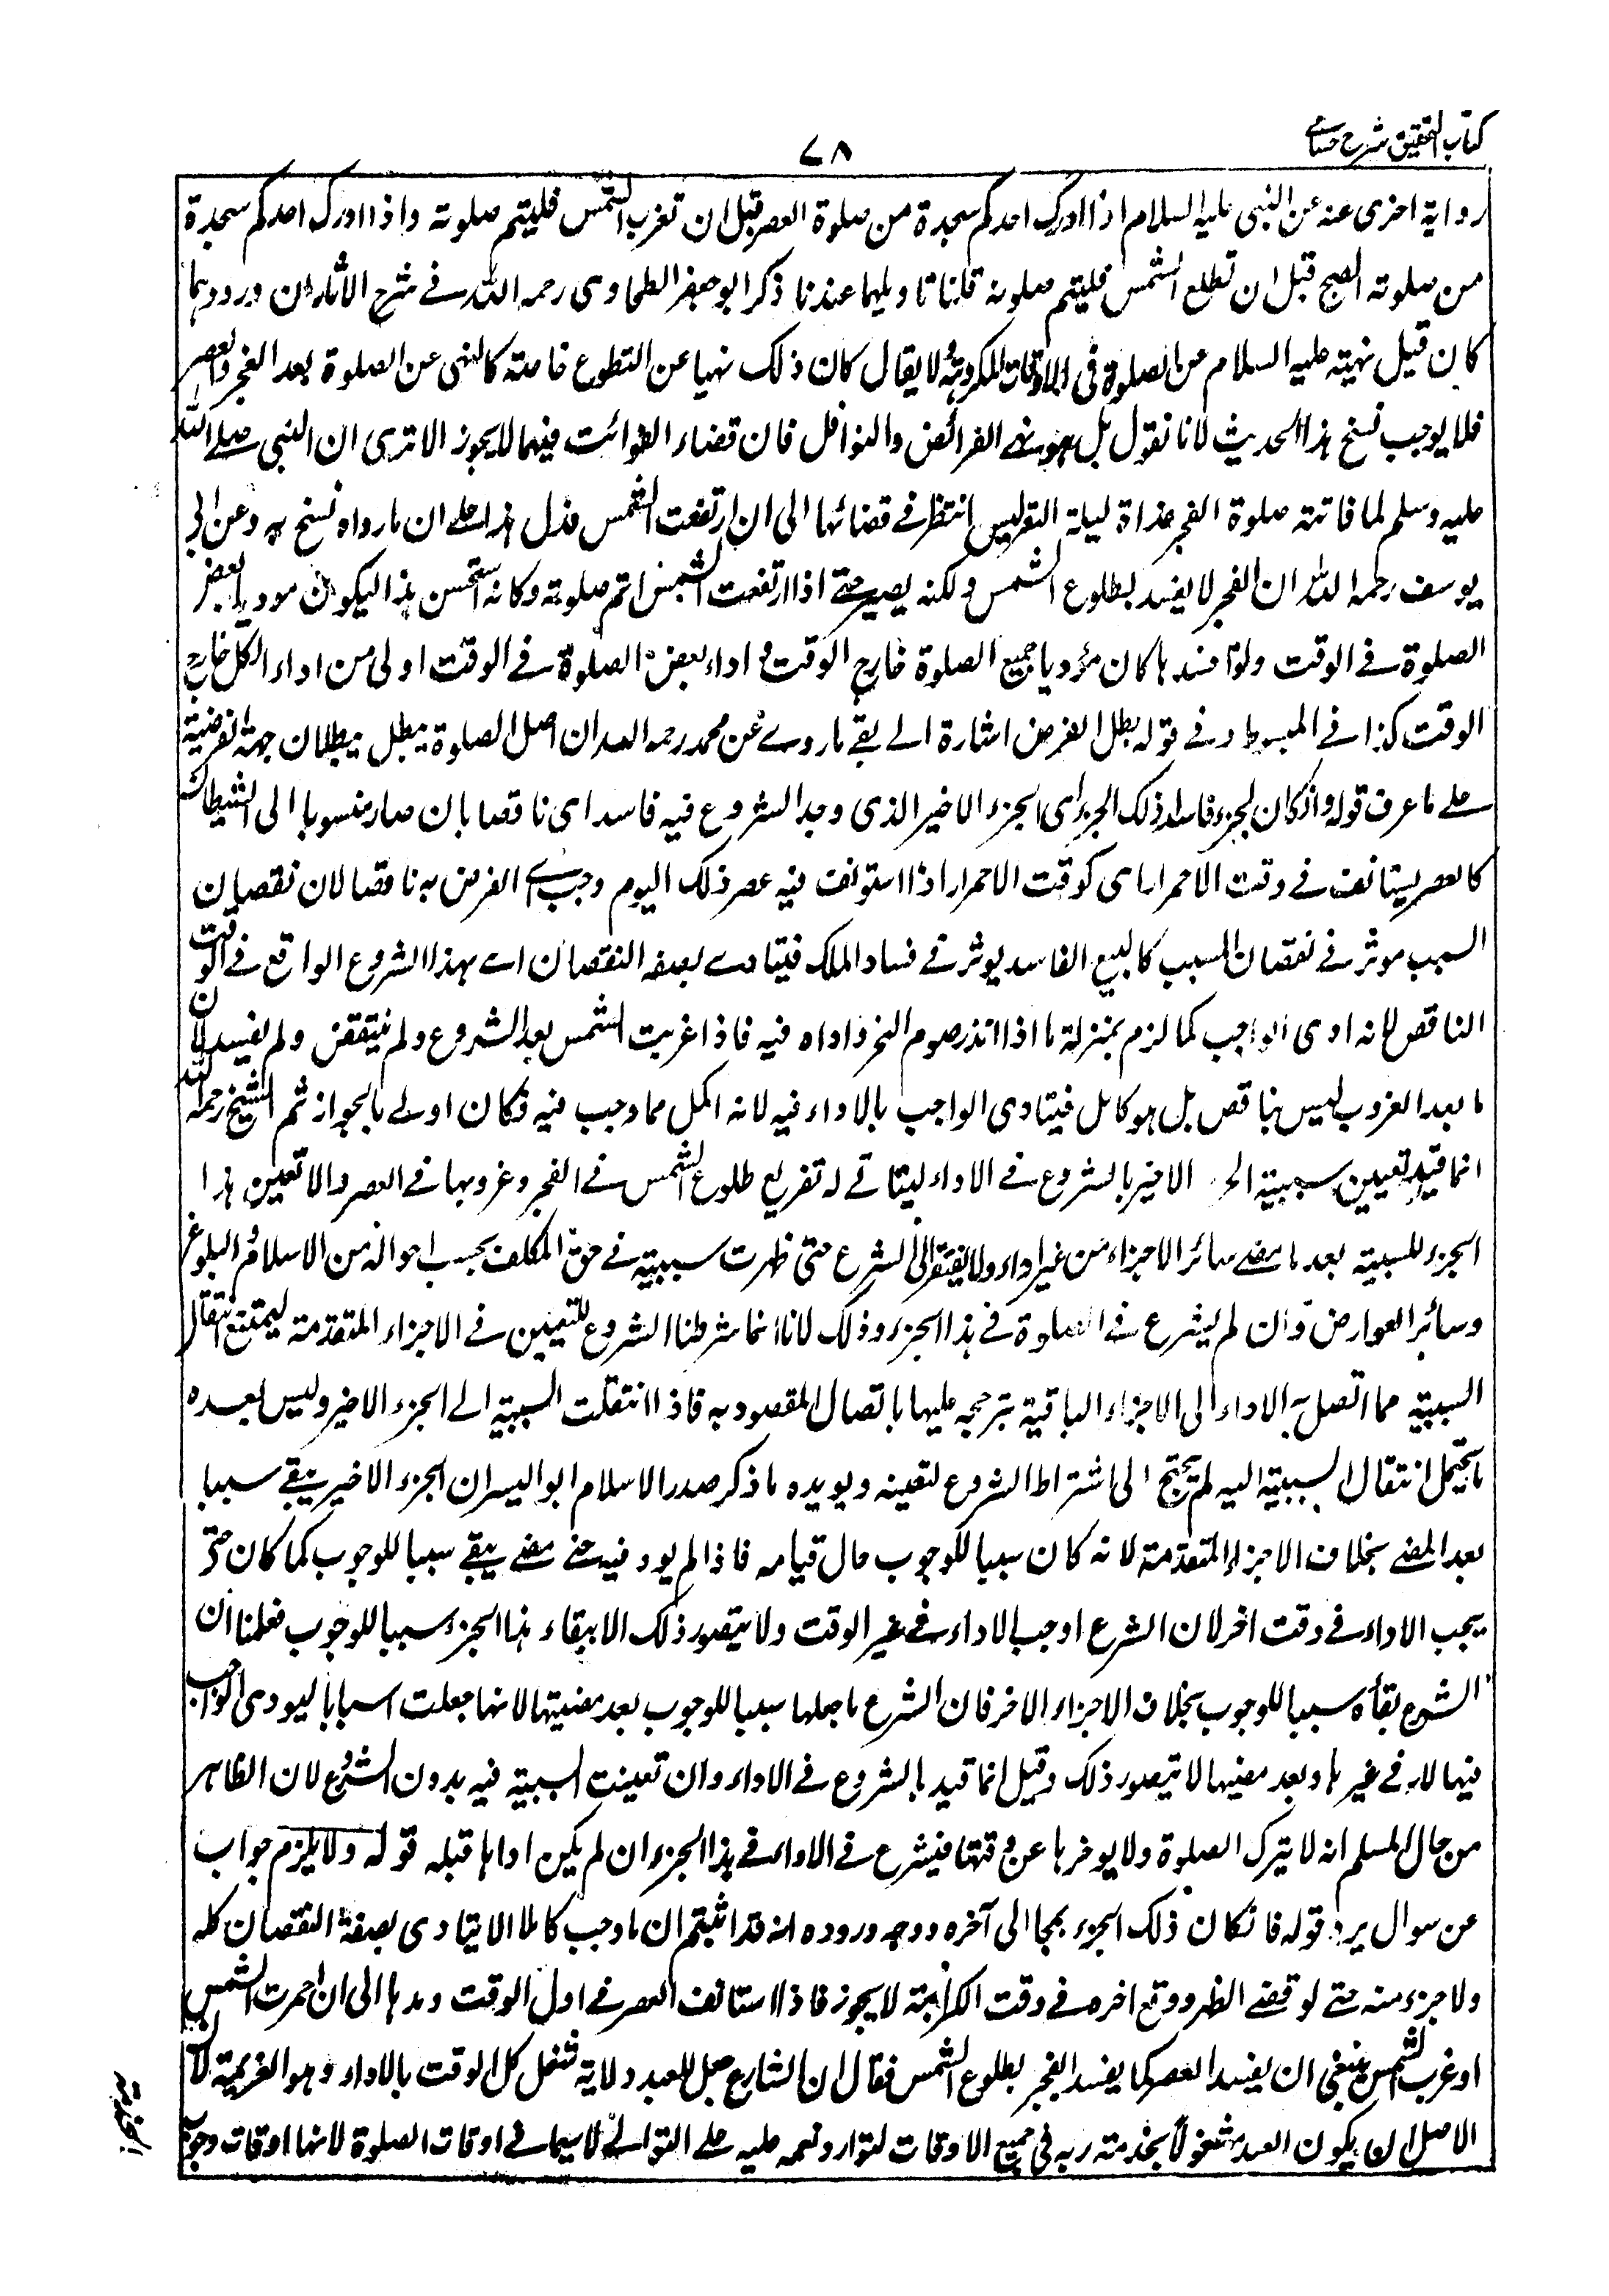 كتاب التحقيق شرح حسامي
٧٨
رواية اخرى عنه عن النبى عليه السلام اذا ادرك احدكم سجدة من صلوة العصر قبل ان تغرب الشمس فليتم صلوته واذا ادرك احدكم سجدة
من صلوته الصبح قبل ان تطلع الشمس فليتم صلوته قلنا تاويلها عندنا ذكر ابو جعفر الطحاوى رحمه الله فے شرح الآثار ان ورودها
كان قبل نهيه عليه السلام عن الصلوة فى الاوقات المكروهة ولا يقال كان ذلك نهيا عن التطوع خاصة كالنهى عن الصلوة بعد الفجر والعصر
فلا يوجب نسخ هذا الحديث لانا نقول بل هو نهے الفرائض والنوافل فان قضاء الفوائت فيهما لا يجوز الا ترى ان النبى صلے الله
عليه وسلم لما فاتته صلوة الفجر غداة ليلة التعريس انتظر فے قضائها الى ان ارتفعت الشمس فدل هذا علے ان ما رواه نسخ به وعن ابى
يوسف رحمه الله ان الفجر لا يفسد بطلوع الشمس ولكنه يصبر حتے اذا ارتفعت الشمس اتم صلوته وكانه استحسن هذا ليكون موديا بعض
الصلوة فے الوقت ولو افسدها كان مؤديا جميع الصلوة خارج الوقت و اداء بعض الصلوة فے الوقت اولى من اداء الكل خارج
الوقت كذا فے المبسوط وفے قوله بطل الفرض اشارة الے بقے ما روے عن محمد رحمه الله ان اصل الصلوة يبطل ببطلان جهة الفرضية
علے ما عرف قوله واذا كان الجزء فاسدا ذلك الجزء اى الجزء الاخير الذى وجد الشروع فيه فاسدا اى ناقصا بان صار منسوبا الى الشيطان
كالعصر يستانف فے وقت الاحمرار اى كوقت الاحمرار اذا استونف فيه عصر ذلك اليوم وجب اے الفرض به ناقصا لان نقصان
السبب موثر فے نقصان المسبب كالبيع الفاسد يوثر فے فساد الملك فيتادے بصفه النقصان اے بهذا الشروع الواقع فے الوقت
الناقص لانه ادى الواجب كما لزم بمنزلة ما اذا انذر صوم النحر واداه فيه فاذا غربت الشمس بعد الشروع ولم ينتقض ولم يفسد لان
ما بعد الغروب ليس بناقص بل هو كامل فيتادى الواجب بالاداء فيه لانه اكمل مما وجب فيه فكان اولے بالجواز ثم الشيخ رحمه الله
انما قيد تعيين سببية الجزء الاخير بالشروع فے الاداء ليتاتے له تفريع طلوع الشمس فے الفجر وغروبها فے العصر والا تعين هذا
الجزء للسببية بعد ما مضے سائر الاجزاء من غير اداء ولا يفتقر الى الشرع حتى ظهرت سببية فے حق المكلف بحسب احواله من الاسلام و البلوغ
وسائر العوارض وان لم يشرع فے الصلوة فے هذا الجزء وذلك لانا انما شرطنا الشروع للتعيين فے الاجزاء المتقدمة ليمتنع انتقال
السببية مما اتصل به الاداء الى الاجزاء الباقية بترجحه عليها باتصال المقصود به فاذا انتقلت السببية الے الجزء الاخير وليس بعده
ما يحتمل انتقال السببية اليه لم يحتج الى اشتراط الشروع لتعينه ويويده ما ذكر صدر الاسلام ابو اليسر ان الجزء الاخير يبقے سببا
بعد المضے بخلاف الاجزاء المتقدمة لانه كان سببا للوجوب حال قيامه فاذا لم يود فيه حتے مضے يبقے سببا للوجوب كما كان حتى
يجب الاداء فے وقت اخر لان الشرع اوجب الاداء فے غير الوقت ولا يتصور ذلك الا ببقاء هذا الجزء سببا للوجوب فعلمنا ان
الشرع بقاه سببا للوجوب بخلاف الاجزاء الاخر فان الشرع ما جعلها سببا للوجوب بعد مضيتها لانها جعلت اسبابا ليودى الواجب
فيها لا فے غيرها وبعد مضيها لا يتصور ذلك وقيل انما قيد بالشروع فے الاداء وان تعينت السببية فيه بدون الشروع لان الظاهر
من حال المسلم انه لا يترك الصلوة ولا يوخرها عن وقتها فيشرع فے الاداء فے هذا الجزء ان لم يكن اداها قبله قوله ولا يلزم جواب
عن سوال يرد قوله فاذا كان ذلك الجزء صحيحا الى آخره ووجه وروده انه قد اثبتم ان ما وجب كاملا لا يتادى بصفة النقصان كله
ولا جزء منه حتے لو قضے الظهر ووقع اخره فے وقت الكراهة لا يجوز فاذا استانف العصر فے اول الوقت ومدها الى ان احمرت الشمس
او غرب الشمس ينبغى ان يفسد العصر كما يفسد الفجر بطلوع الشمس فقال ان الشارع جعل للعبد ولاية شغل كل الوقت بالاداء وهو العزيمة لان
الاصل ان يكون العبد مشغولا بخدمته ربه فى جميع الاوقات لتوارد نعمه عليه علے التوالے لا سيما فے اوقات الصلوة لانها اوقات وجوب